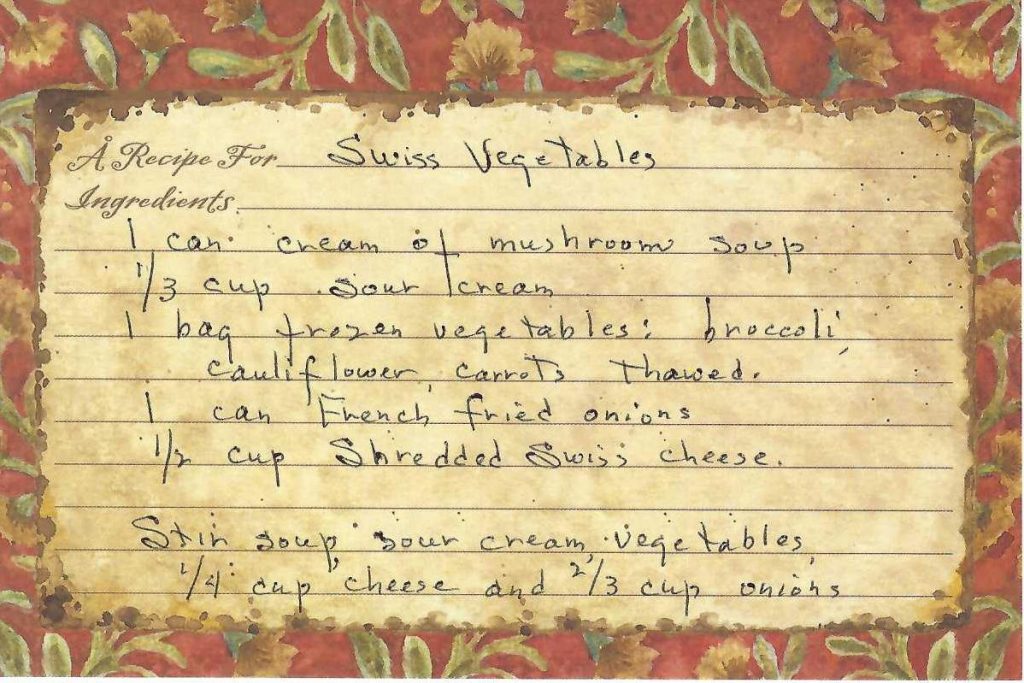 A Recipe For Swiss Vegetables
Ingredients
1 can cream of mushroom soup
1/3 cup sour cream
1 bag frozen vegetables: broccoli,
cauliflower, carrots thawed.
1 can French fried onions
1/2 cup Shredded Swiss cheese.
Stir soup, sour cream, vegetables,
1/4 cup cheese and 2/3 cup onions